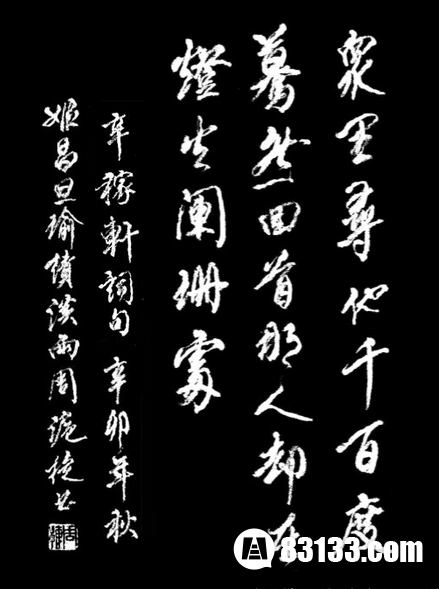 衆里尋他千百度
驀然回首那人却在
燈火闌珊處
辛稼軒詞句 辛卯年秋
姬昌旦瑜績漢兩周
83133.com